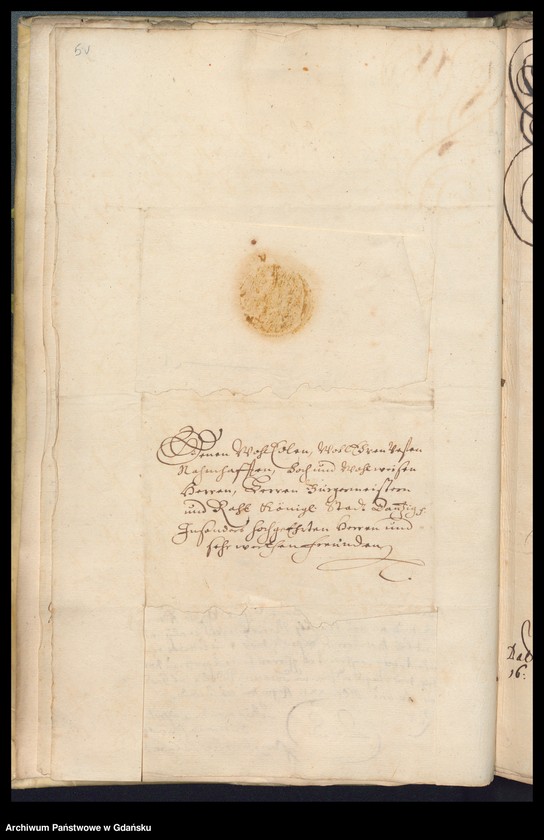 Denen WohlEdlen, WohlEhren Vesten
Nahmhafften, Hoch und Wohlweisen
Herren, Herren Bürgermeistern
und Raht Königl. Stadt Dantzigk
Insonders hochgeEhrten Herren und
sehr werthen freünden
16.
Archiwum Państwowe w Gdańsku